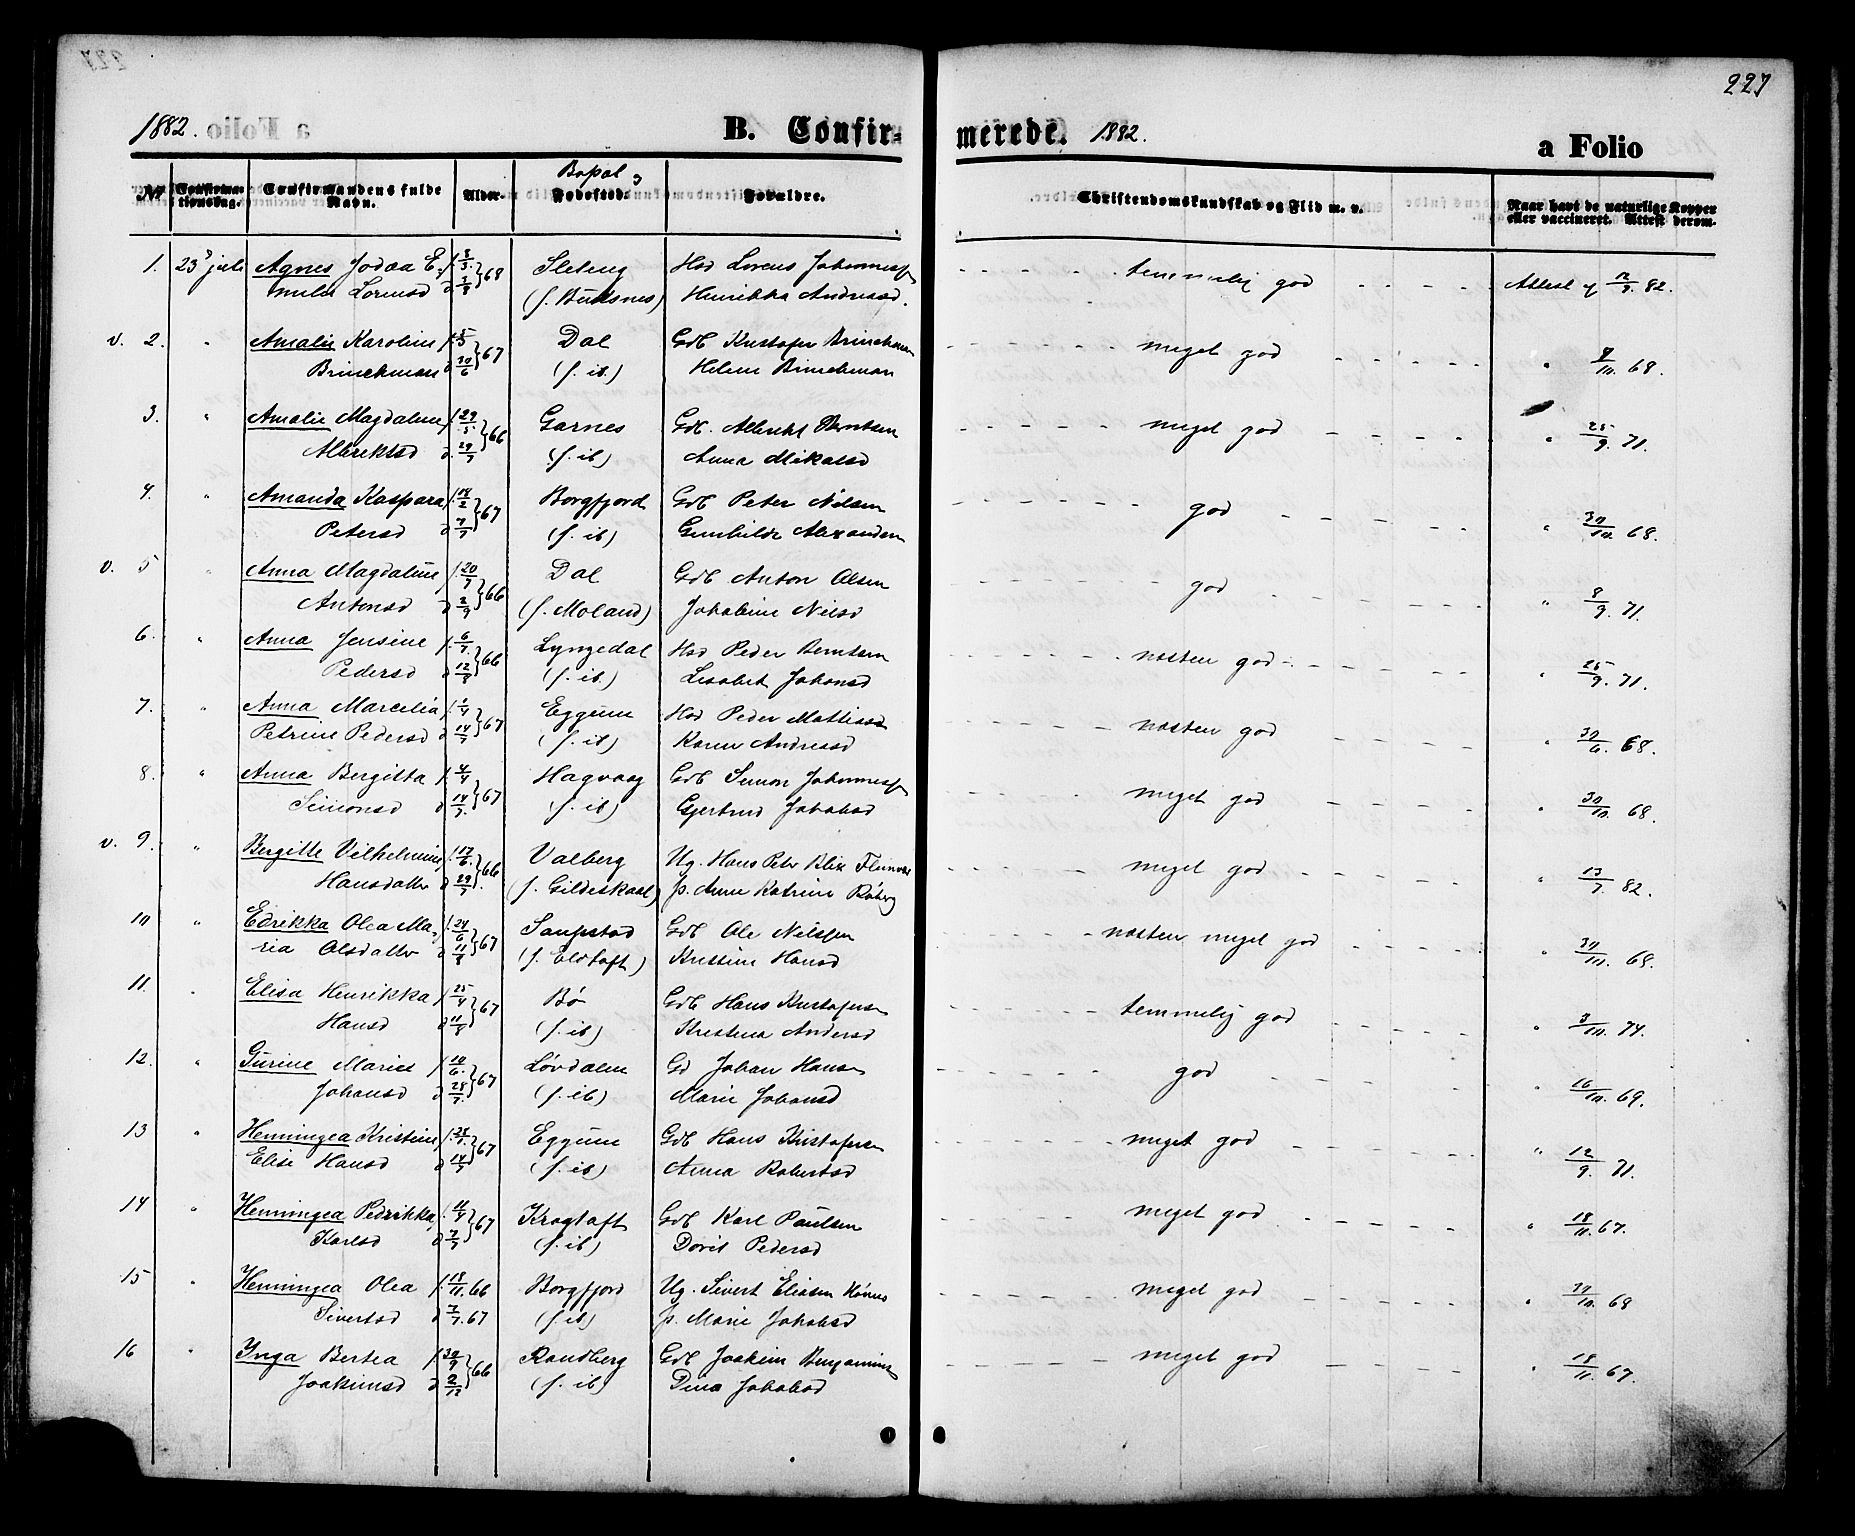 227
1882.
B. Confir-
merede. 1882.
a Folio
No.
Confirma-
tionsdag.
Confirmandens fulde
Navn.
Alder.
Bopæl og
Fødested.
Forældre.
Christendomskundskab og Flid m. v.
Naar havt de naturlige Kopper
eller vaccineret. Attest derom.
1. 23de juli Agnes E. f. 5/3 68 Hsd Lorens Johannessen temmelig god Attest af 12/9. 82.
Lorensd d. (f. Buksnes) Henrikka Andreasd.
v. 2. " Amalie Karoline f. 67 Dal Gdb Kristofer Brinchman meget god " 68.
Brinckman d 6 (f. ib.) Helene Brinchman
3. " Amalie Magdalene f. 29/5 66 Garnes Gdb. Albrekt Berntsen meget god " 25/9. 71.
Albrektsd d. 29/7 (f. ib) Anna Mikalsd
4. " Amanda Kaspara f. 18/2 67 Borgfjord Gdb Peter Nilsen god " 30/10. 68.
Petersd d 7/7 (f. ib) Gunhilde Alexandersen
v. 5 " Anna Magdalene f. 20/7 66 Dal Gdb Anton Olsen god " 8/9. 71.
Antonsd d 2/9 (f. Moland) Jokobine Nilsd
6. " Anna Jensine f. 6/7. 66 Lyngedal Hsd Peder Berntsen næsten god " 25/9. 71.
Pedersd d 12/8 (f. ib) Lisabet Johansd
7. " Anna Marcelia f. 1/4 67 Eggum Hsd Peder Mattisen næsten god " 30/6. 68.
Petrine Pedersd d 14/7 (f. ib) Karen Andreasd
8. " Anna Bergitta f. 4/4 67 Hagvaag Gdb Simon Johannessen meget god " 30/10. 68.
Simonsd d 14/7. (f. ib) Gjertrud Jakobsd
v. 9. " Bergitte Vilhelmine f. 17/6. 66 Valberg Ug. Hans Peter Blix meget god " 13/7. 82.
Hansdatter d 29/7. (f. Gildeskaal) p. Anne Katrine Røberg
10 " Edrikka Olea Ma- f. 24/6 67 Saupstad Gdb Ole Nilssen næsten meget god " 30/10. 68.
ria Olsdatter d 11/8 (f. Eltoft) Kristine Hansd
11. " Elisa Henrikka f. 25/4 67 Bø Gdb Hans Kristofersen temmelig god " 3/10. 74.
Hansd d 11/8 (f. ib) Kristina Andersd
12. " Gurine Marie f. 10/6. 67 Løvdalen Gd Johan Hansen god " 16/10. 69.
Johansd d 28/7. (f. ib) Marie Johansd
13 " Henningea Kristine f. 67 Eggum Gdb Hans Kristofersen meget god " 12/9. 71.
Elise Hansd d 14/7 (f. ib) Anna Robertsd
14 " Henningea Pedrikka f. 11/4 67 Krogtoft Gdb Karl Paulsen meget god " 18/11. 67.
Karlsd d 7/7 (f. ib) Dorit Pedersd
15 " Henningea Olea f. 18/11. 66 Borgfjord Ug. Sivert Eliasen meget god " 68
Sivertsd d 7/7. 67 (f. ib) p. Marie Jakobsd
16 " Inga Bertea f. 30/9 66 Sandberg Gdb Joakim Benjaminsen meget god " 18/11. 67.
Joakimsd d 2/12 (f. ib) Dina Jakobsd